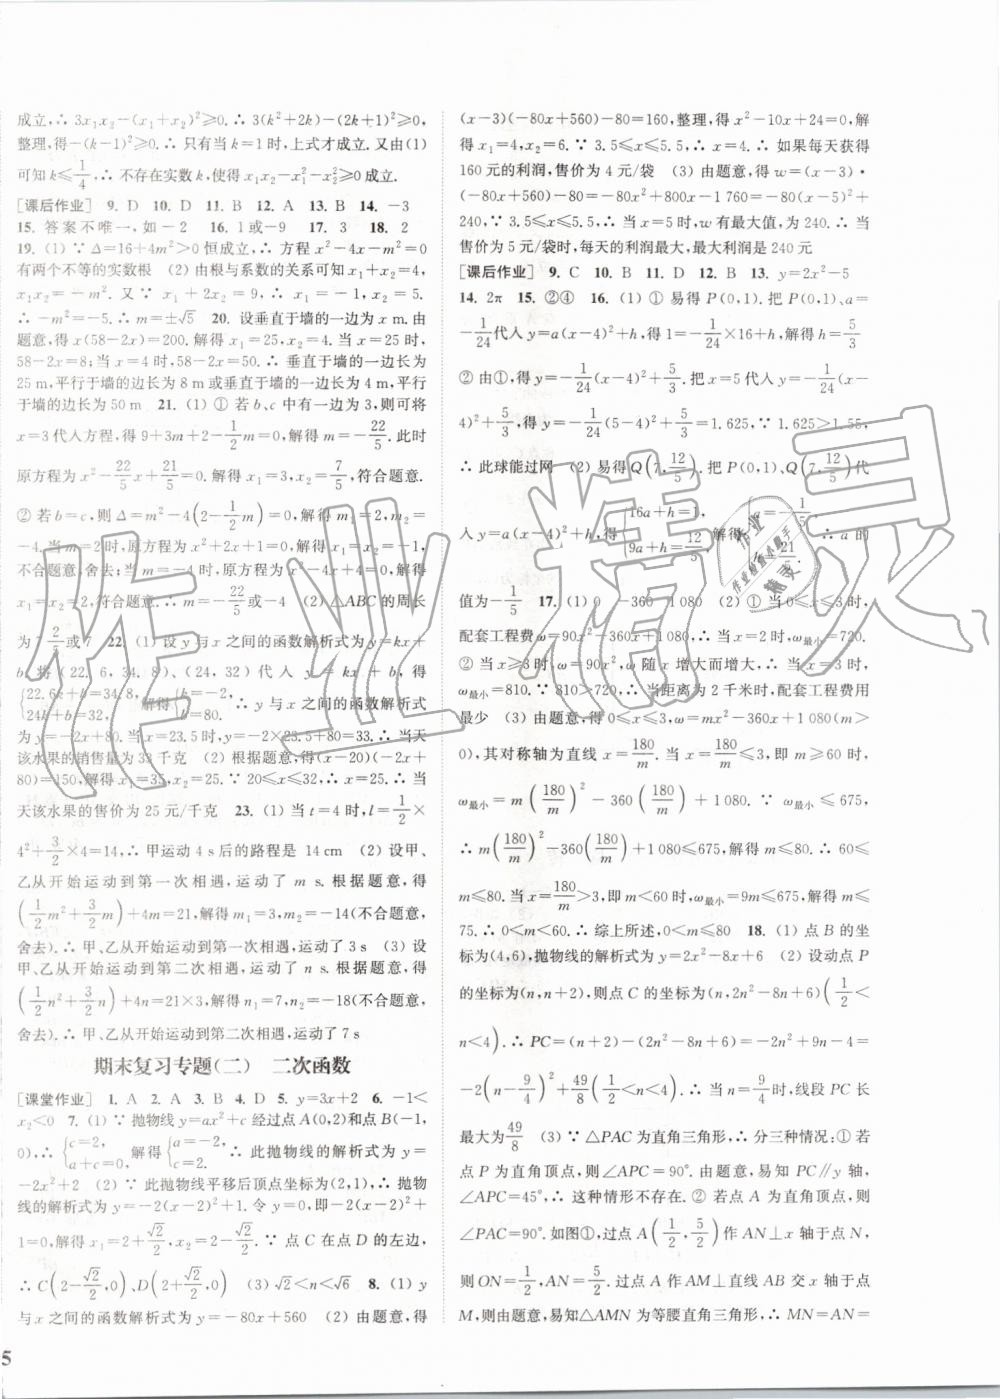 成立,∴ 3x₁x₂-(x₁+x₂)²≥0,∴ 3(k²+2k)-(2k+1)²≥0,
整理,得-(k-1)²≥0.∴ 只有当 k=1 时,上式才成立.又由(1)
可知 k≤1/4,∴ 不存在实数 k,使得 x₁x₂-x₁²-x₂²≥0 成立.
[课后作业] 9. D 10. D 11. B 12. A 13. B 14. -3
15. 答案不唯一,如-2 16. 1或-9 17. 3 18. 2
19. (1) ∵ Δ=16+4m²>0 恒成立,∴ 方程 x²-4x-m²=0
有两个不等的实数根 (2) 由根与系数的关系可知 x₁+x₂=4,
x₁x₂=-m². 又 ∵ x₁+2x₂=9,∴ x₂=5,x₁=-1.
∴ -m²=-5.∴ m=±√5 20. 设垂直于墙的一边为 x m.由
题意,得 x(58-2x)=200.解得 x₁=25,x₂=4.当 x=25 时,
58-2x=8;当 x=4 时,58-2x=50.∴ 垂直于墙的一边长为
25 m,平行于墙的边长为 8 m或垂直于墙的一边长为 4 m,平行
于墙的边长为 50 m 21. (1) ① 若 b、c 中有一边为 3,则可将
x=3 代入方程,得 9+3m+2-1/2m=0.解得 m=-22/5.此时
原方程为 x²-22/5x+21/5=0.解得 x₁=3,x₂=7/5,符合题意.
② 若 b=c,则 Δ=m²-4(2-1/2m)=0.解得 m=-4 或 2.
题意,舍去;当 m=-4 时,原方程为 x²-4x+4=0.解得
x₁=x₂=2,符合题意.∴ m=-22/5 或-4 (2) △ABC 的周长
为 7 2/5 或 7 22. (1) 设 y 与 x 之间的函数解析式为 y=kx+
b.将 (22.6, 34.8)、(24, 32) 代入 y=kx+b,得
{22.6k+b=34.8, 24k+b=32. 解得 {k=-2, b=80. ∴ y 与 x 的函数解析式
为 y=-2x+80.当 x=23.5 时,y=-2x+80=33.∴ 当天
该水果的销售量为 33 千克 (2) 由题意,得(x-20)(-2x+
80)=150.解得 x₁=35,x₂=25.∵ 20≤x≤32,∴ x=25.∴ 当
天该水果的售价为 25 元/千克 23. (1) 当 t=4 时,l=1/2×
4²+3/2×4=14,∴ 甲运动 4 s后的路程是 14 cm (2) 设甲、
乙从开始运动到第一次相遇,运动了 m s.根据题意,得
(1/2m²+3/2m)+4m=21,解得 m₁=3,m₂=-14(不合题意,
舍去).∴ 甲、乙从开始运动到第一次相遇,运动了 3 s (3) 设
甲、乙从开始运动到第二次相遇,运动了 n s.根据题意,得
(1/2n²+3/2n)+4n=21×3,解得 n₁=7,n₂=-18(不合题意,
舍去).∴ 甲、乙从开始运动到第二次相遇,运动了 7 s
期末复习专题(二) 二次函数
[课堂作业] 1. A 2. A 3. B 4. D 5. y=3x+2 6. -1<
x₂<0 7. (1) ∵ 抛物线 y=ax²+c 经过点 A(0,2)和点 B(-1,
0),∴ {c=2, a+c=0. 解得 {a=-2, c=2. ∴ 此抛物线的解析式为 y=
-2x²+2 (2) ∵ 此抛物线平移后顶点坐标为(2,1),∴ 抛物
线的解析式为 y=-2(x-2)²+1.令 y=0,即-2(x-2)²+
1=0,解得 x₁=2+√2/2,x₂=2-√2/2.∵ 点 C 在点 D 的左边,
∴ C(2-√2/2,0)、D(2+√2/2,0) (3) √2<n<√6 8. (1) y
与 x 之间的函数解析式为 y=-80x+560 (2) 由题意,得
(x-3)(-80x+560)-80=160,整理,得 x²-10x+24=0.解
得 x₁=4,x₂=6.∵ 3.5≤x≤5.5,∴ x=4.∴ 如果每天获得
160 元的利润,售价为 4 元/袋 (3) 由题意,得 w=(x-3)·
(-80x+560)-80=-80x²+800x-1 760=-80(x-5)²+
240.∵ 3.5≤x≤5.5,∴ 当 x=5 时,w 有最大值,为 240.∴ 当
售价为 5 元/袋时,每天的利润最大,最大利润是 240 元
[课后作业] 9. C 10. B 11. D 12. B 13. y=2x²-5
14. 2π 15. ②④ 16. (1) ① 易得 P(0,1).把 P(0,1)、a=
-1/24代入 y=a(x-4)²+h,得 1=-1/24×16+h,解得 h=5/3
② 由①,得 y=-1/24(x-4)²+5/3.把 x=5 代入 y=-1/24(x-
4)²+5/3,得 y=-1/24(5-4)²+5/3=1.625,∵ 1.625>1.55,
∴ 此球能过网 (2) 易得 Q(7,12/5).把 P(0,1)、Q(7,12/5)代
入 y=a(x-4)²+h,得 {16a+h=1, 9a+h=12/5. 解得 {a=-1/5, h=21/5. ∴ a 的
值为-1/5 17. (1) 0 -360 1 080 (2) ① 当 0≤x≤3 时,
配套工程费 ω=90x²-360x+1 080,∴ 当 x=2 时,ω最小=720.
② 当 x≥3 时,ω=90x²,ω 随 x 增大而增大,∴ 当 x=3 时,
ω最小=810.∵ 810>720,∴ 当距离为 2 千米时,配套工程费用
最少 (3) 由题意,得 0≤x≤3,ω=mx²-360x+1 080(m>
0),其对称轴为直线 x=180/m.当 x=180/m≤3,即 m≥60 时,
ω最小=m(180/m)²-360(180/m)+1 080.∵ ω最小≤675,
∴ m(180/m)²-360(180/m)+1 080≤675,解得 m≤80.∴ 60≤
m≤80.当 x=180/m>3,即 m<60 时,ω最小=9m≤675,解得 m≤
75.∴ 0<m<60.∴ 综上所述,0<m≤80 18. (1) 点 B 的坐
标为(4,6),抛物线的解析式为 y=2x²-8x+6 (2) 设动点 P
的坐标为(n,n+2),则点 C 的坐标为(n,2n²-8n+6)(1/2<
n<4).∴ PC=(n+2)-(2n²-8n+6)=-2n²+9n-4=
-2(n-9/4)²+49/8(1/2<n<4).∴ 当 n=9/4时,线段 PC 长
最大为49/8 (3) ∵ △PAC 为直角三角形,∴ 分三种情况:① 若
点 P 为直角顶点,则∠APC=90°.由题意,易知 PC∥y 轴,
∠APC=45°,∴ 这种情形不存在.② 若点 A 为直角顶点,则
∠PAC=90°.如图①,过点 A(1/2,5/2)作 AN⊥x 轴于点 N,
则 ON=1/2,AN=5/2.过点 A 作 AM⊥直线 AB,交 x 轴于点
M,则由题意,易知△AMN 为等腰直角三角形,∴ MN=AN=
5
作业精灵